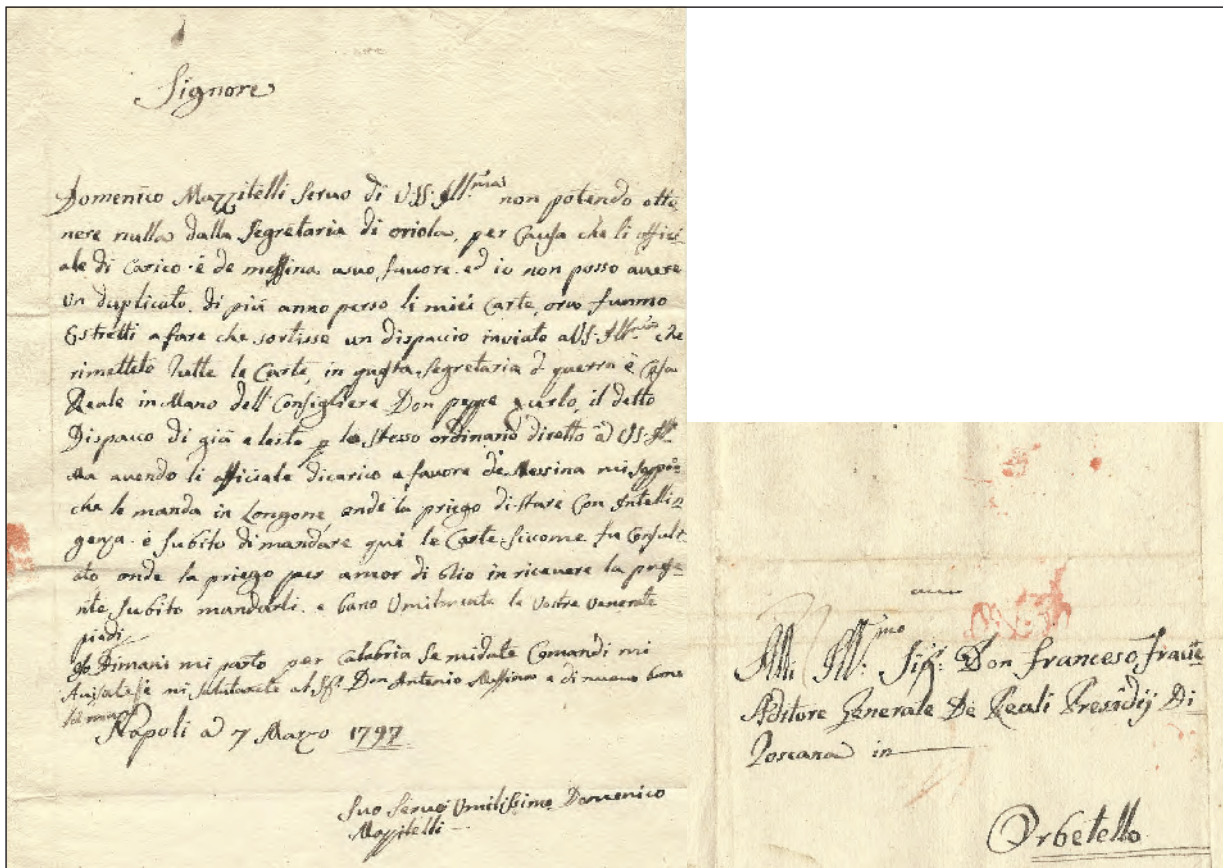 Signore
Domenico Mazzitelli Servo di V.S. Ill.ma non potendo otte
nere nulla dalla Segretaria di oriola, per Causa che li offici
ale di Carico è de messina a suo favore ed io non posso avere
un duplicato, di più anno perso li miei Carte, ora fummo
Costretti a fare che sortisse un dispaccio inviato a V.S. Ill.ma che
rimettete Tutte le Carte, in questa Segretaria di guerra è Casa
Reale in Mano dell Consigliere Don peppe zurlo, il detto
Dispacco di già e lesto p lo stesso ordinario diretto à VS. Ill.
Ma avendo li officiale di carico a favore de Messina mi
che le manda in Longone, onde la priego di stare Con Intelli
genza è Subito di mandare qui le Carte Sicome fu Consult
ato onde la priego per amor di Dio in ricevere la prese
nte Subito mandarli. e Umilmente le vostre venerate
piedi
Dimani mi parto per Calabria Se mi date Comandi mi
Avisate e mi Salutarete al Sig. Don Antonio Messina e di nuovo
Napoli a 7 Marzo 1797
Suo Servo Umilissimo Domenico
Mazzitelli
All. Ill.mo Sig. Don Franceso
Aditore Generale De Reali Presidij Di
Toscana in
Orbetello